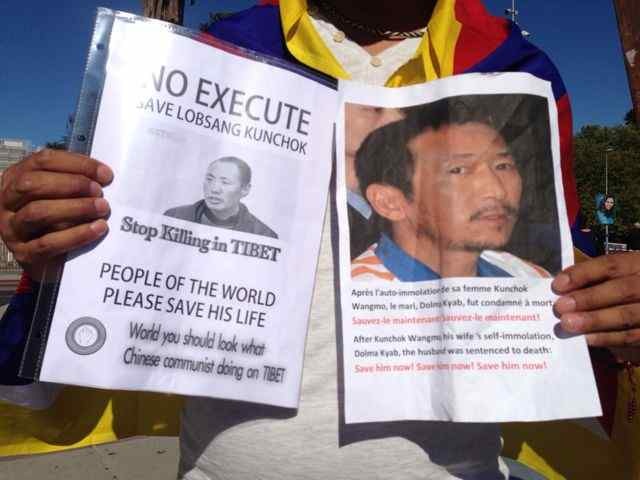 NO EXECUTE
SAVE LOBSANG KUNCHOK
Stop Killing in TIBET
PEOPLE OF THE WORLD
PLEASE SAVE HIS LIFE
World you should look what
Chinese communist doing on TIBET
Après l'auto-immolation de sa femme Kunchok
Wangmo, le mari, Dolma Kyab, fut condamné à mort
Sauvez-le maintenant! Sauvez-le maintenant!
After Kunchok Wangmo his wife 's self-immolation,
Dolma Kyab, the husband was sentenced to death:
Save him now! Save him now! Save him now!